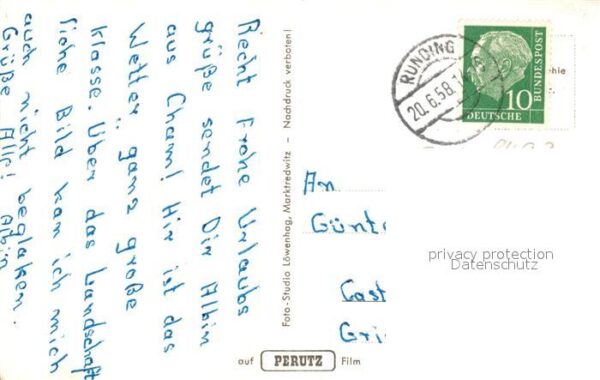 Recht Frohe Urlaubs
grüße sendet Dir Albin
aus Cham! Hir ist das
Wetter ganz große
Klasse. Über das Landschaft
siehe Bild kan ich mich
auch nicht beglaken.
Grüße Alle! Albin
Foto-Studio Löwenhag, Marktredwitz - Nachdruck verboten!
auf PERUTZ Film
RUNDING
20.6.58.
10
DEUTSCHE
BUNDESPOST
An
Günt
Cast
Gri
privacy protection
Datenschutz